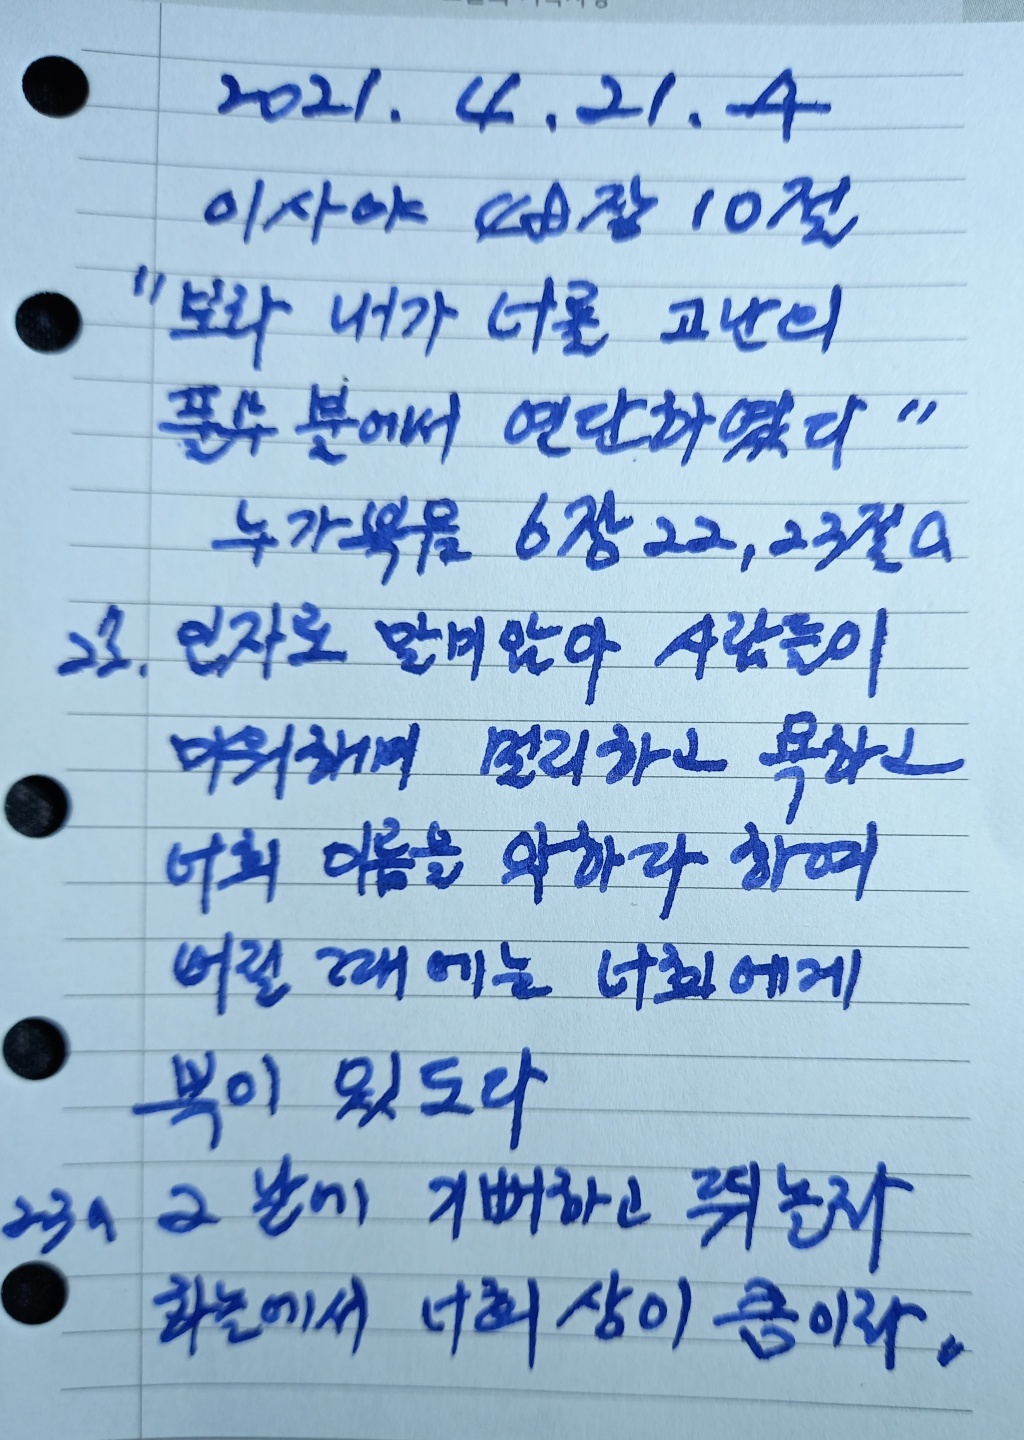 2021. 4. 21. 수
이사야 48장 10절
"보라 내가 너를 고난의
풀무 불에서 연단하였다"
누가복음 6장 22, 23절a
23. 인자로 말미암아 사람들이
미워하며 멀리하고 욕하고
너희 이름을 악하다 하여
버릴 때에는 너희에게
복이 있도다
23a 그 날에 기뻐하고 뛰놀자
하늘에서 너희 상이 큼이라.